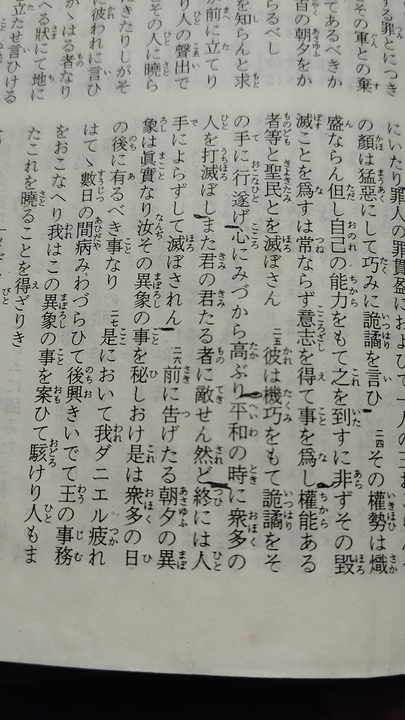 する罪とにつき
その軍との棄
てあるべきか
百の朝夕をか
らるべし
を知らんと求
が前に立てり
り人の聲出で
その人に曉ら
きたりしがそ
に彼われに言ひ
かゝはる者なり
へる狀にて地に
立たせ言ひける
にいたり罪人の罪貫盈におよびて一人の王おこ
の顏は猛惡にして巧みに詭譎を言ひ 二四その權勢は熾
盛ならん但し自己の能力をもて之を到すに非ずその毀
滅ことを爲すは常ならず意志を得て事を爲し權能ある
者等と聖民とを滅ぼさん 二五彼は機巧をもて詭譎をそ
の手に行遂げ心にみづから高ぶり平和の時に衆多の
人を打滅ぼしまた君の君たる者に敵せん然ど終には人
手によらずして滅ぼされん 二六前に告げたる朝夕の異
象は眞實なり汝その異象の事を秘しおけ是は衆多の日
の後に有るべき事なり 二七是において我ダニエル疲れ
はてゝ數日の間病みわづらひて後興きいでて王の事務
をおこなへり我はこの異象の事を案ひて駭けり人もま
たこれを曉ることを得ざりき